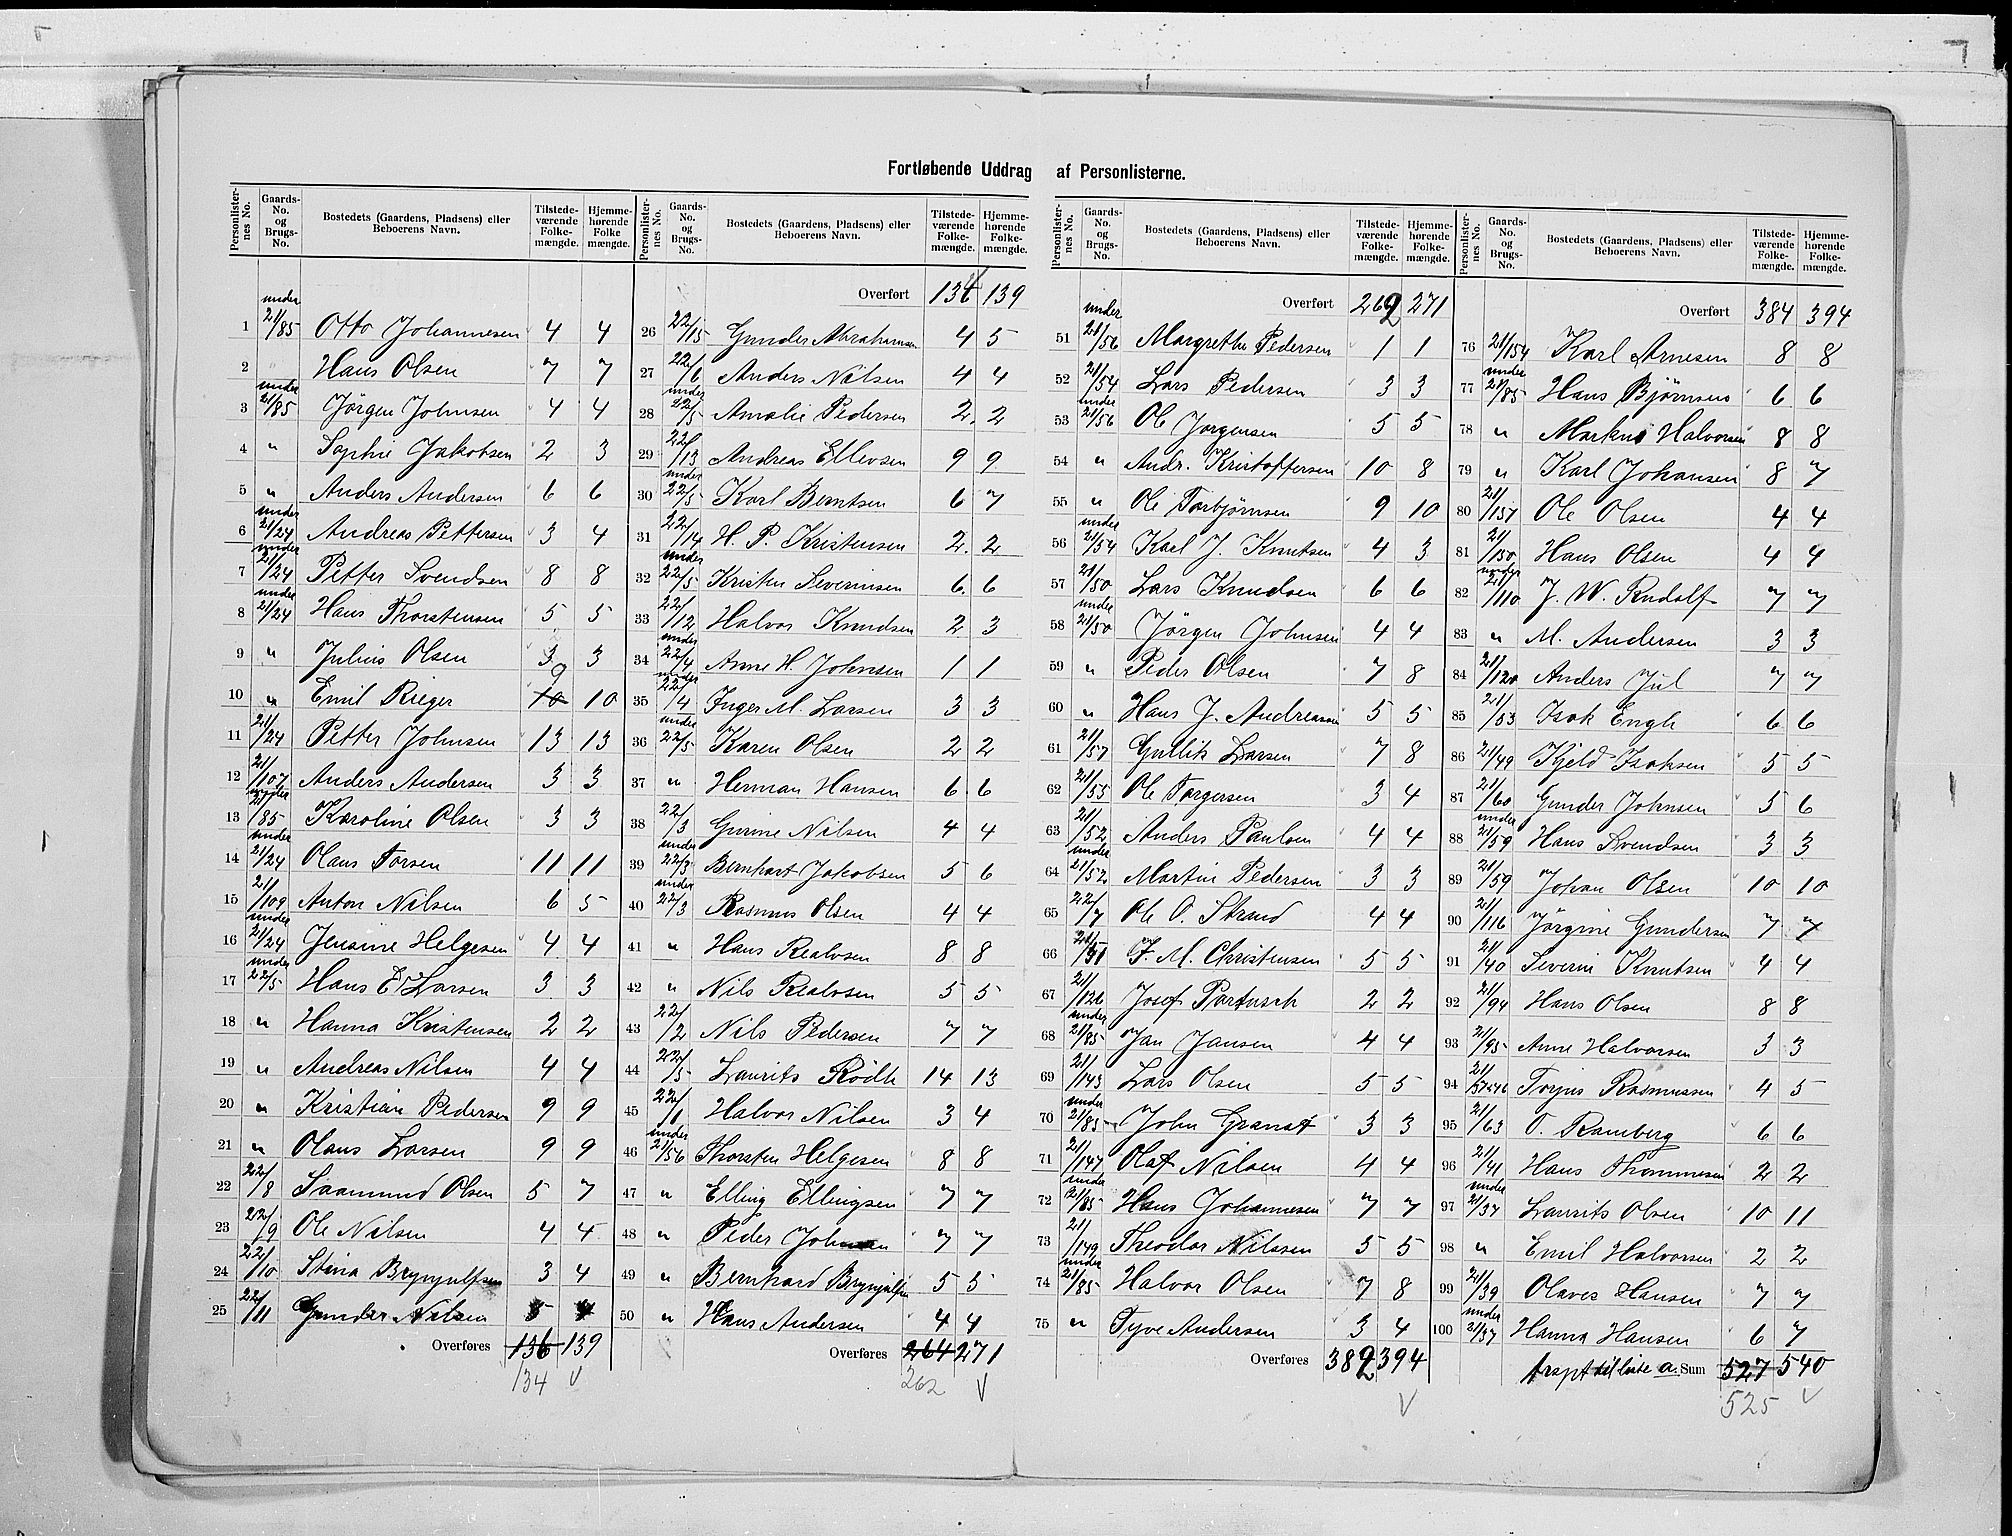 Fortløbende Uddrag af Personlisterne.
Personlister-nes No. Gaards-No. og Brugs-No. Bostedets (Gaardens, Pladsens) eller Beboerens Navn. Tilstede-værende Folke-mængde. Hjemme-hørende Folke mængde.
1 under 21/85 Otto Johannesen 4 4
2 " Hans Olsen 7 7
3 under 21/85 Jørgen Johnsen 4 4
4 " Sophie Jakobsen 2 3
5 " Anders Andersen 6 6
6 under 21/24 Andreas Pettersen 3 4
7 under 21/24 Petter Svendsen 8 8
8 under 21/24 Hans Thorstensen 5 5
9 " Julius Olsen 3 3
10 " Emil Rieger 10 9 10
11 21/24 Petter Johnsen 13 13
12 21/107 Anders Andersen 3 3
13 under 21/85 Karoline Olsen 3 3
14 under 21/24 Olaus Torsen 11 11
15 21/109 Anton Nilsen 6 5
16 under 21/24 Jensine Helgesen 4 4
17 under 22/5 Hans E Larsen 3 3
18 " Hanna Kristensen 2 2
19 " Andreas Nilsen 4 4
20 " Kristian Pedersen 9 9
21 " Olaus Larsen 9 9
22 22/8 Saamund Olsen 5 7
23 22/9 Ole Nilsen 4 4
24 22/10 Stina Brynjulfsen 3 4
25 22/11 Gunder Nilsen 5 4
Overføres 136 139
134 V
Personlister-nes No. Gaards-No. og Brugs-No. Bostedets (Gaardens, Pladsens) eller Beboerens Navn. Tilstede-værende Folke-mængde. Hjemme-hørende Folke-mængde.
Overført 134 139
26 22/15 Gunder Abrahamsen 4 5
27 22/6 Anders Nilsen 4 4
28 under 22/5 Amalie Pedersen 2 2
29 22/13 Andreas Ellevsen 9 9
30 under 22/5 Karl Berntsen 6 7
31 22/14 H. P. Kristensen 2 2
32 under 22/5 Kristen Severinsen 6 6
33 22/12 Halvor Knudsen 2 3
34 under 22/4 Anne H. Johnsen 1 1
35 under 22/4 Inger M. Larsen 3 3
36 under 22/5 Karen Olsen 2 2
37 " Herman Hansen 6 6
38 22/3 Gurine Nilsen 4 4
39 under 22/3 Bernhart Jakobsen 5 6
40 under 22/3 Rasmus Olsen 4 4
41 " Hans Realvsen 8 8
42 " Nils Realvsen 5 5
43 22/2 Nils Pedersen 7 7
44 22/5 Laurits Rödh 14 13
45 22/1 Halvor Nilsen 3 4
46 under 21/56 Thorsten Helgesen 8 8
47 " Elling Ellingsen 7 7
48 " Peder Johnsen 7 7
49 " Bernhard Brynjulfsen 5 5
50 " Hans Andersen 4 4
Overføres 264 271
262 V
Personlister-nes No. Gaards-No. og Brugs-No. Bostedets (Gaardens, Pladsens) eller Beboerens Navn. Tilstede-værende Folke-mængde. Hjemme-hørende Folke-mængde.
Overført 262 271
51 under 21/56 Margrethe Pedersen 1 1
52 21/54 Lars Pedersen 3 3
53 under 21/56 Ole Jørgensen 5 5
54 " Andr. Kristoffersen 10 8
55 " Ole Torbjørnsen 9 10
56 under 21/54 Karl J. Knutsen 4 3
57 21/50 Lars Knudsen 6 6
58 under 21/50 Jörgen Johnsen 4 4
59 " Peder Olsen 7 8
60 " Hans J. Andreasen 5 5
61 21/57 Gullik Larsen 7 8
62 21/55 Ole Torgersen 3 4
63 21/52 Anders Paulsen 4 4
64 under 21/52 Martin Pedersen 3 3
65 22/7 Ole O. Strand 4 4
66 21/51 F. M. Christensen 5 5
67 21/126 Josef Partusch 2 2
68 under 21/85 Jan Jansen 4 4
69 21/143 Lars Olsen 5 5
70 under 21/85 John Granst 3 3
71 21/147 Olaf Nilsen 4 4
72 under 21/85 Hans Johannesen 7 7
73 21/149 Theodor Nilssen 5 5
74 under 21/85 Halvor Olsen 7 8
75 " Tyve Andersen 3 4
Overføres 382 394
V
Personlister-nes No. Gaards-No. og Brugs-No. Bostedets (Gaardens, Pladsens) eller Beboerens Navn. Tilstede-værende Folke-mængde. Hjemme-hørende Folke-mængde.
Overført 384 394
76 21/154 Karl Arnesen 8 8
77 under 21/85 Hans Bjørnsen 6 6
78 " Markus Halvorsen 8 8
79 " Karl Johansen 8 7
80 21/157 Ole Olsen 4 4
81 21/150 Hans Olsen 4 4
82 under 21/110 J. W. Rudolf 7 7
83 " M. Andersen 3 3
84 21/120 Anders Jul 7 7
85 21/53 Isak Engh 6 6
86 21/49 Kjeld Isaksen 5 5
87 21/60 Gunder Johnsen 5 6
88 under 21/59 Hans Svendsen 3 3
89 21/59 Johan Olsen 10 10
90 21/116 Jörgine Gundersen 7 7
91 21/40 Severin Knutsen 4 4
92 21/94 Hans Olsen 8 8
93 21/95 Anne Halvorsen 3 3
94 21/37+46 Torjus Rasmussen 4 5
95 21/63 O. Ramberg 6 6
96 21/41 Hans Thommesen 2 2
97 under 21/37 Laurits Olsen 10 11
98 " Emil Halvorsen 2 2
99 21/39 Olaves Hansen 7 7
100 under 21/37 Hanna Hansen 6 7
til liste a. Sum 527 540
525 V